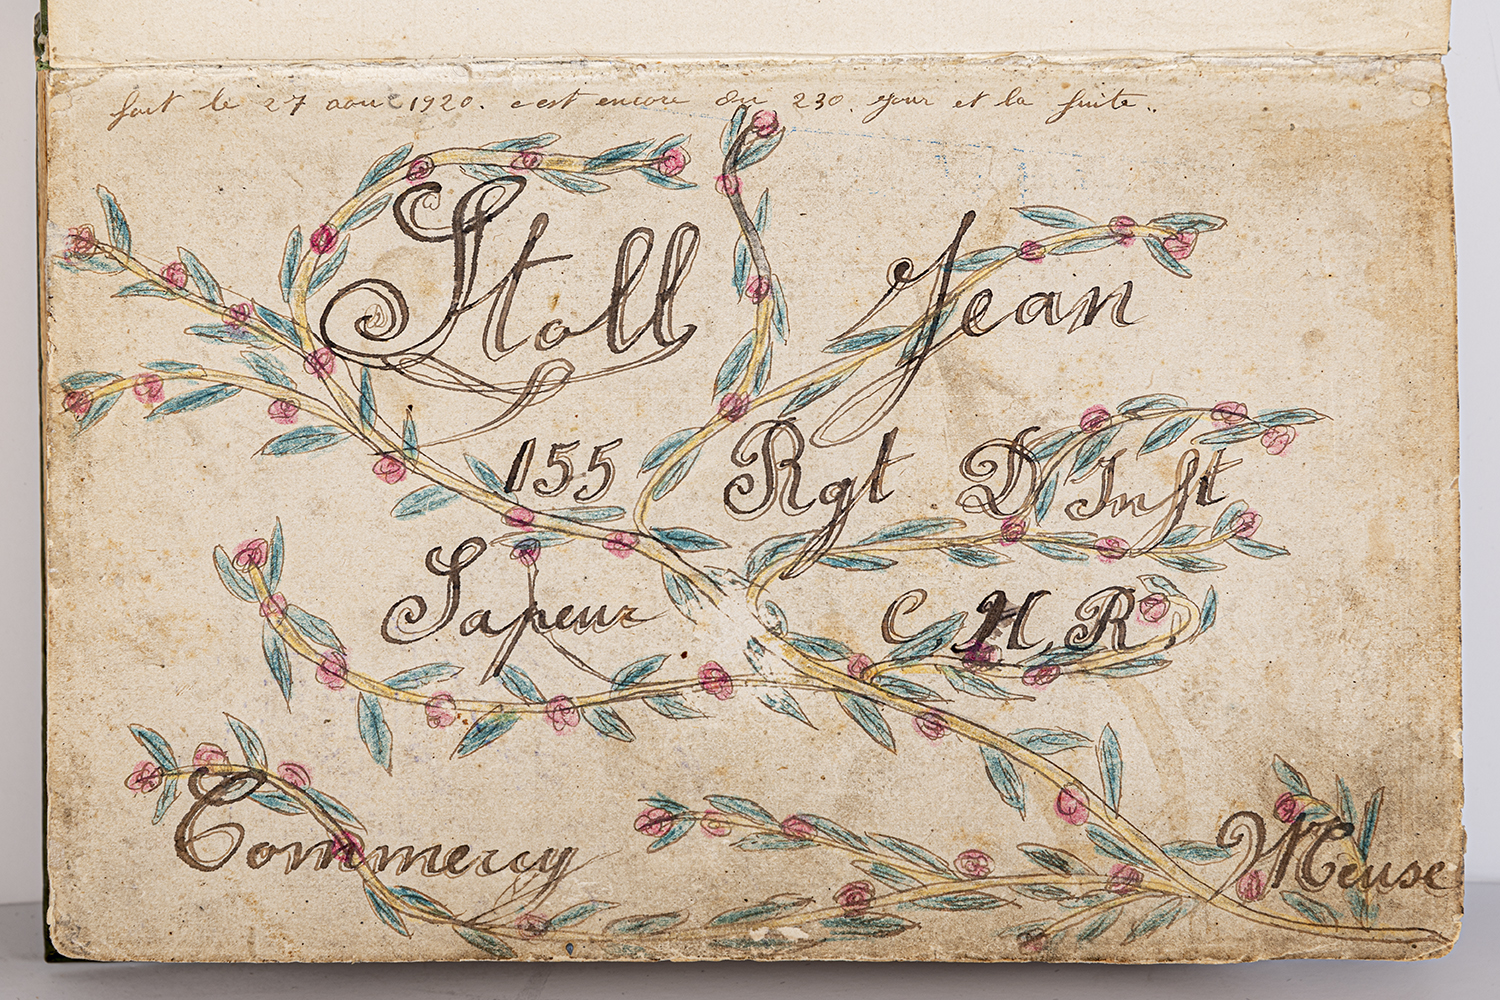 fait le 27 aout 1920. c'est encore du 230 jour et la fuite..
Stoll Jean
155 Rgt D Inft
Sapeur C. H. R.
Commercy Meuse